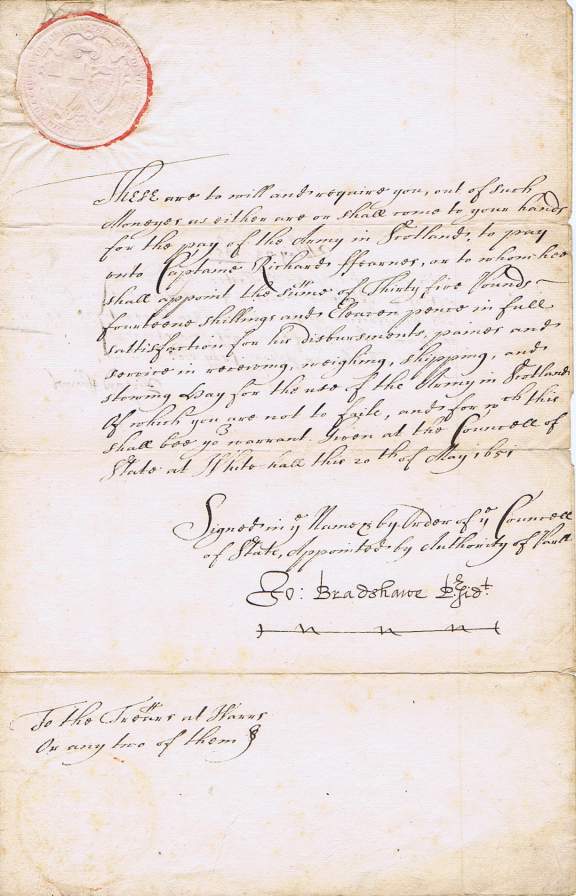 These are to will and require you, out of such
Moneyes as either are or shall come to your hands
for the pay of the Army in Scotland, to pay
unto Captaine Richard ffearnes, or to whom hee
shall appoint the sum̄e of Thirty five Pounds
fourteene shillings and Eleaven pence in full
sattisfaction for his disbursments, paines and
service in receiving, weighing, shipping, and
stowing Hay for the use of the Army in Scotland
Of which you are not to faile, and for wch this
shall bee yor warrant. Given at the Councell of
State at White hall this 20th of May 1651
Signed in ye Name & by Order of ye Councell
of State, Appointed by Authority of Parlt
Jo: Bradshawe Presidt
To the Trẽars at Warrs
Or any two of them